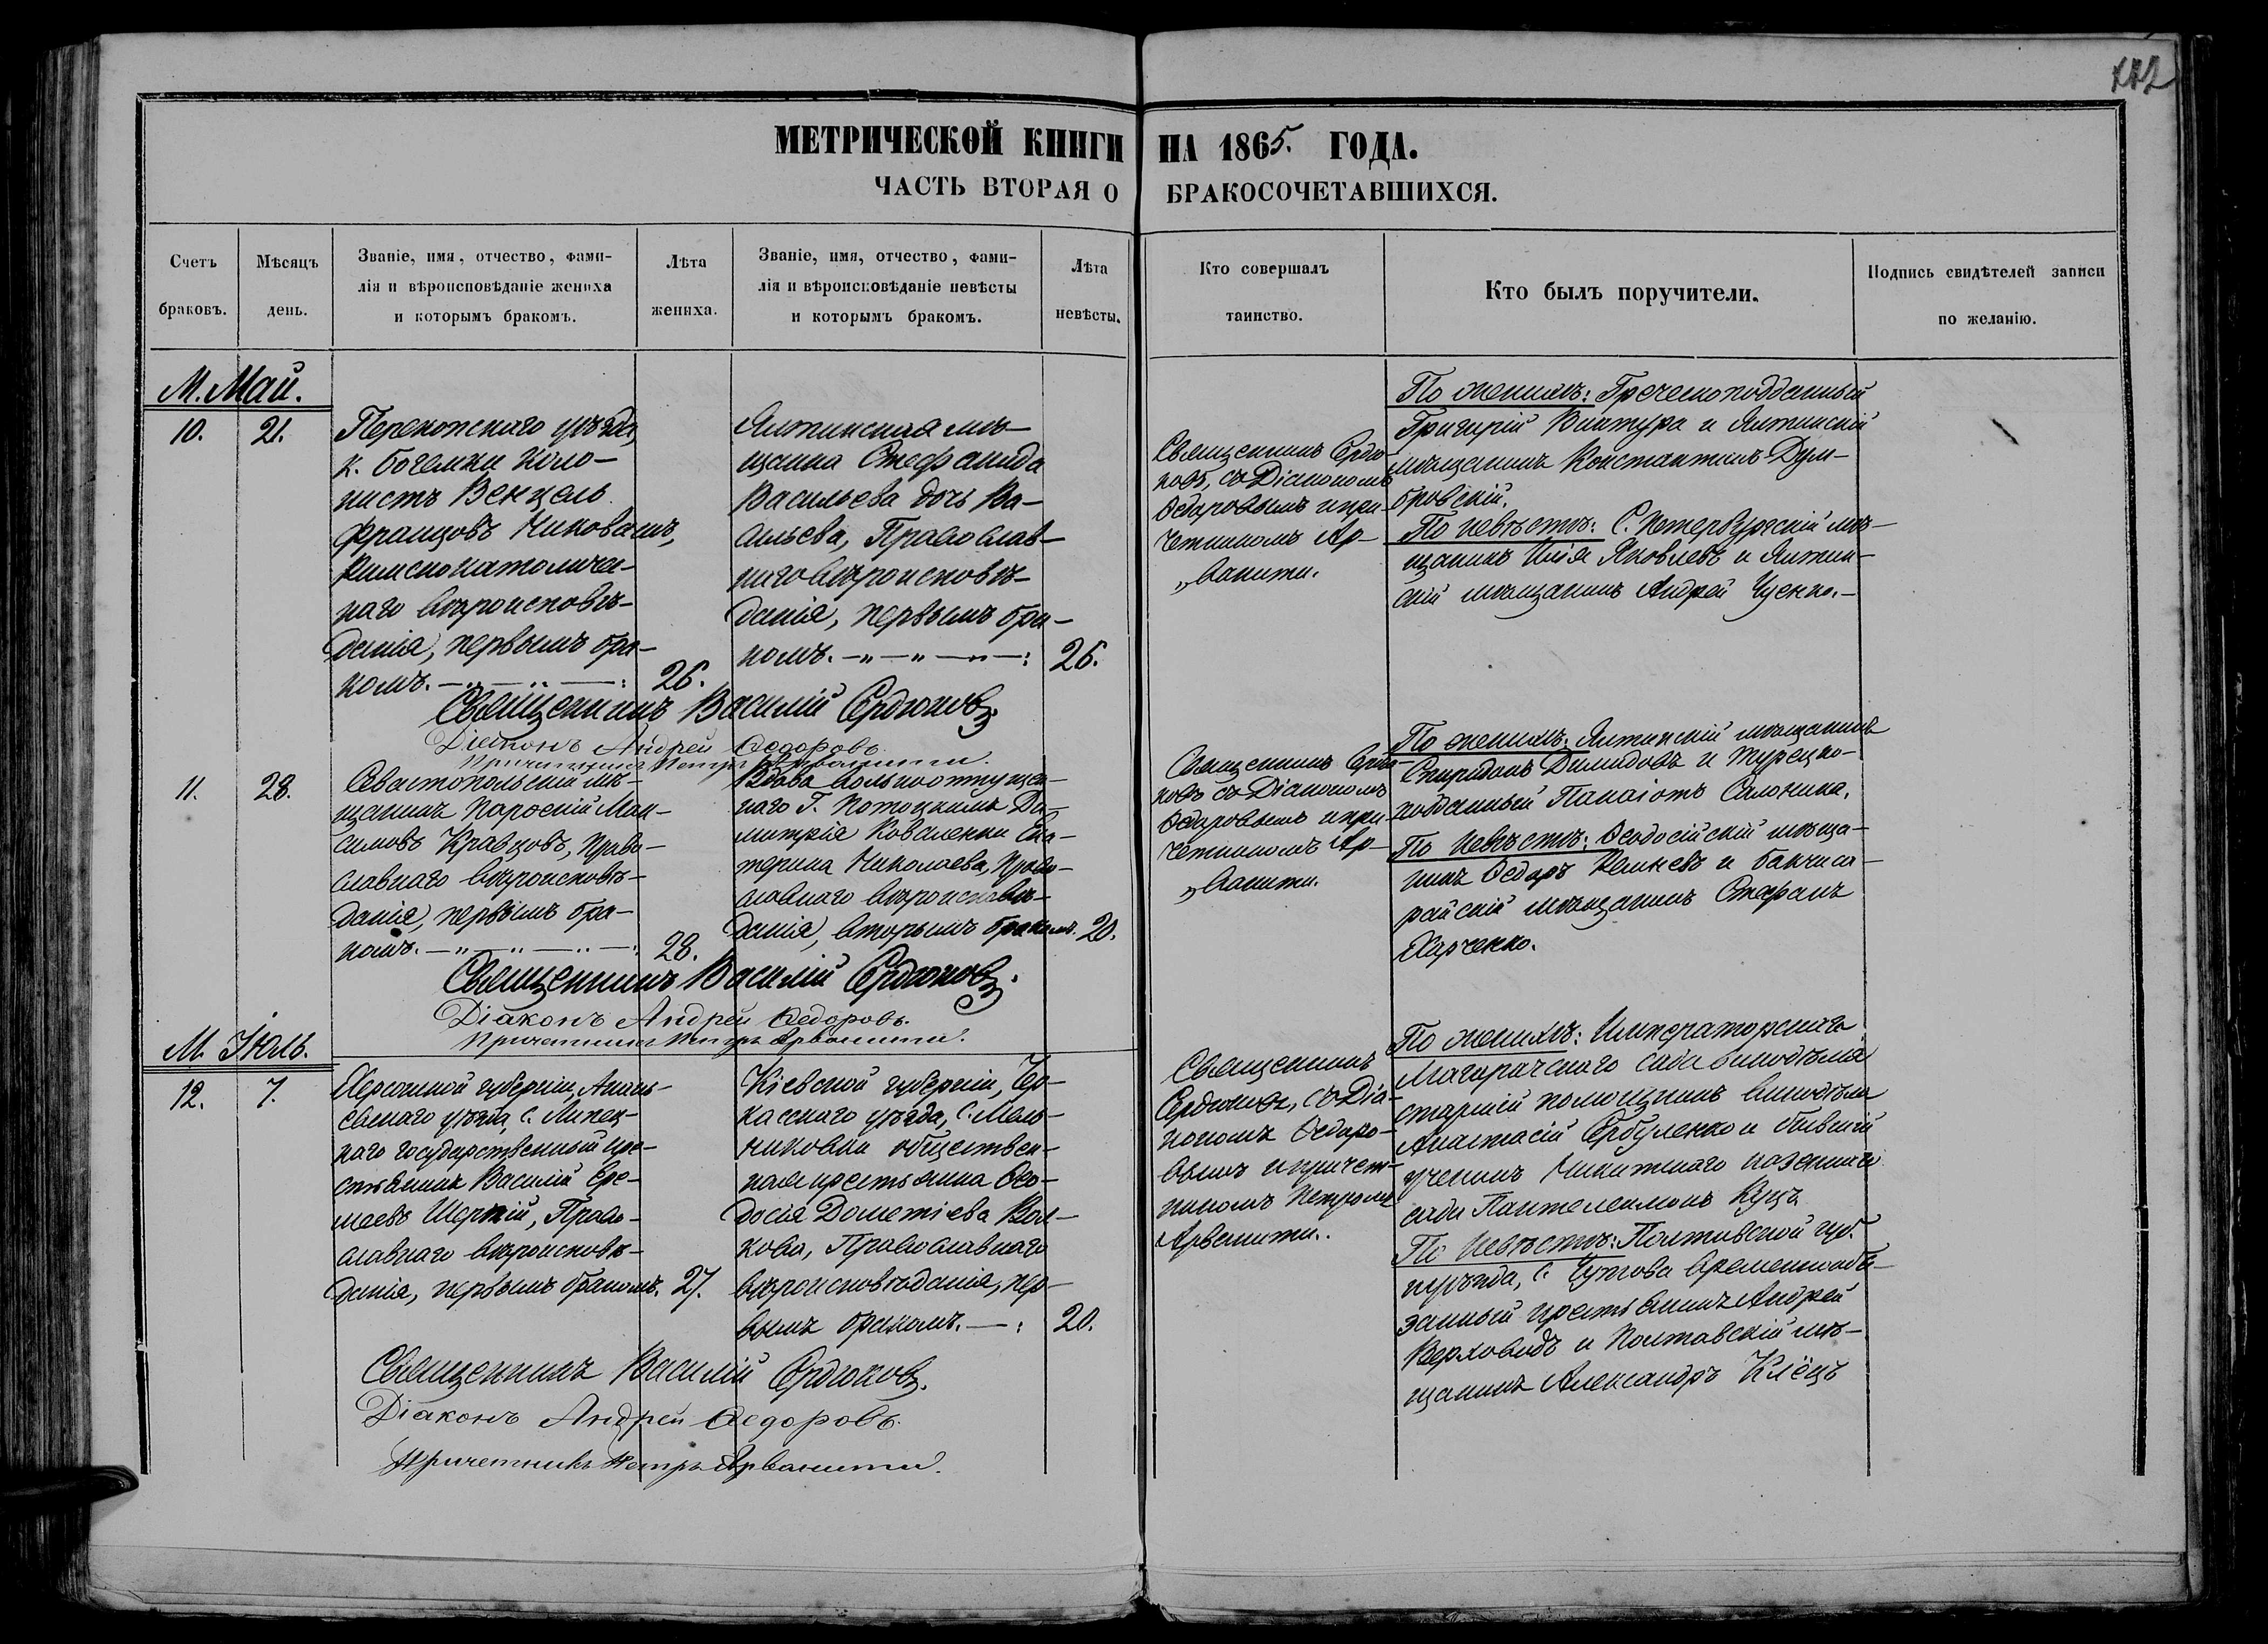 112
МЕТРИЧЕСКОЙ КНИГИ НА 1865. ГОДА.
ЧАСТЬ ВТОРАЯ О БРАКОСОЧЕТАВШИХСЯ.
Счетъ
браковъ.
Мѣсяцъ
день.
Званіе, имя, отчество, фами-
лія и вѣроисповѣданіе жениха
и которымъ бракомъ.
Лѣта
жениха.
Званіе, имя, отчество, фами-
лія и вѣроисповѣданіе невѣсты
и которымъ бракомъ.
Лѣта
невѣсты.
Кто совершалъ
таинство.
Кто былъ поручители.
Подпись свидѣтелей записи
по желанію.
М. Май.
10.
21.
Перекопскаго уѣзда,
к. Богемки коло-
нистъ Венцель
Францовъ
Римскокатоличе-
каго вѣроисповѣ-
данія, первымъ бра-
комъ.
26.
Ялтинская мѣ-
щанка Стефанида
Васильева дочь Ва-
сильева, Православ-
наго вѣроисповѣ-
данія, первымъ бра-
комъ.
26.
Священникъ Сердю-
ковъ, съ Діакономъ
Ѳедоровымъ и при-
четникомъ Ар-
„ванити.
По женихѣ: Греческоподданный
Григорій Вантура и Ялтинскій
мѣщанинъ Константинъ Дум-
бровскій.
По невѣстѣ: С. Петербургскій мѣ-
щанинъ Илія Яковлевъ и Ялтин-
скій мѣщанинъ Андрей Чуенко.-
Священникъ Василій Сердюковъ.
Діаконъ Андрей Ѳедоровъ.
Причетникъ Петръ Арванити.
11.
28.
Севастопольскій мѣ-
щанинъ Парѳеній Мак-
симовъ Кравцовъ, Право-
славнаго вѣроисповѣ-
данія, первымъ бра-
комъ.
28.
Вдова вольноотпущен-
наго Г. Потоцкимъ Ди-
митрія Коваленки Ека-
терина Николаева, Право-
славнаго вѣроисповѣ-
данія, вторымъ бракомъ.
20.
Священникъ Сердю-
ковъ съ Діакономъ
Ѳедоровымъ и при-
четникомъ Ар-
„ванити.
По женихѣ: Ялтинскій мѣщанинъ
Спиридонъ Димидовъ и турецко-
подданный Панаіотъ Салоника.
По невѣстѣ: Ѳеодосійскій мѣща-
нинъ Ѳедоръ и Бахчиса-
райскій мѣщанинъ Стефанъ
Харченко.
Священникъ Василій Сердюковъ.
Діаконъ Андрей Ѳедоровъ.
Причетникъ Петръ Арванити.
М. Іюль.
12.
7.
Херсонской губерніи, Анань-
евскаго уѣзда, с. Липец-
каго государственный кре-
стьянинъ Василій Ере-
меевъ Шерпій, Право-
славнаго вѣроисповѣ-
данія, первымъ бракомъ.
27.
Кіевской губерніи, Чер-
касскаго уѣзда, с. Мель-
никовки обществен-
ная крестьянка Ѳео-
досія Дометіева Вол-
кова, Православнаго
вѣроисповѣданія, пер-
вымъ бракомъ.
20.
Священникъ
Сердюковъ, съ Діа-
кономъ Ѳедоро-
вымъ и причет-
никомъ Петромъ
Арванити.
По женихѣ: Императорскаго
Магарачскаго сада винодѣлія
старшій помощникъ винодѣла
Анастасій Сербуленко и бывшій
ученикъ Никитскаго казеннаго
сада Пантелеимонъ Куцъ
По невѣстѣ: Полтавской губ.
и уѣзда, с. Чутова временнообя-
занный крестьянинъ Андрей
Верховодъ и Полтавскій мѣ-
щанинъ Александръ Клёцъ
Священникъ Василій Сердюковъ.
Діаконъ Андрей Ѳедоровъ.
Причетникъ Петръ Арванити.